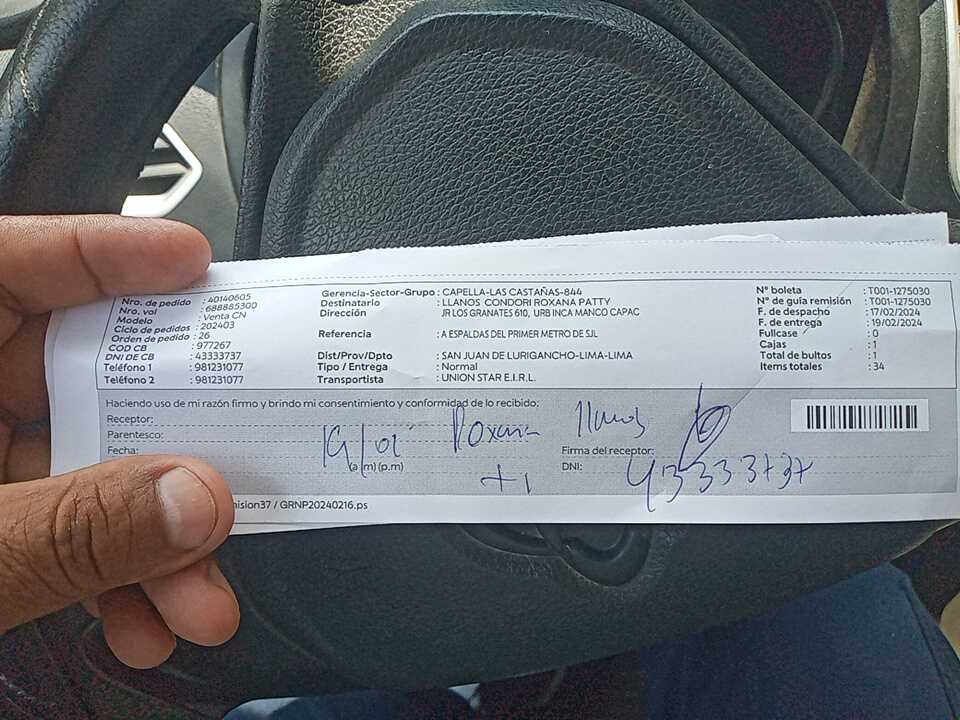 Nro. de pedido : 40140605
Nro. vol : 688885300
Modelo : Venta CN
Ciclo de pedidos : 202403
Orden de pedido : 26
COD CB : 977267
DNI DE CB : 43333737
Teléfono 1 : 981231077
Teléfono 2 : 981231077
Gerencia-Sector-Grupo : CAPELLA-LAS CASTAÑAS-844
Destinatario : LLANOS CONDORI ROXANA PATTY
Dirección : JR LOS GRANATES 610, URB INCA MANCO CAPAC
Referencia : A ESPALDAS DEL PRIMER METRO DE SJL
Dist/Prov/Dpto : SAN JUAN DE LURIGANCHO-LIMA-LIMA
Tipo / Entrega : Normal
Transportista : UNION STAR E.I.R.L.
N° boleta : T001-1275030
N° de guía remisión : T001-1275030
F. de despacho : 17/02/2024
F. de entrega : 19/02/2024
Fullcase : 0
Cajas : 1
Total de bultos : 1
Items totales : 34
Haciendo uso de mi razón firmo y brindo mi consentimiento y conformidad de lo recibido:
Receptor: Roxana llanos
Parentesco:
Fecha: 19/02
(a.m) (p.m)
Firma del receptor:
DNI: 43333737
ision37 / GRNP20240216.ps